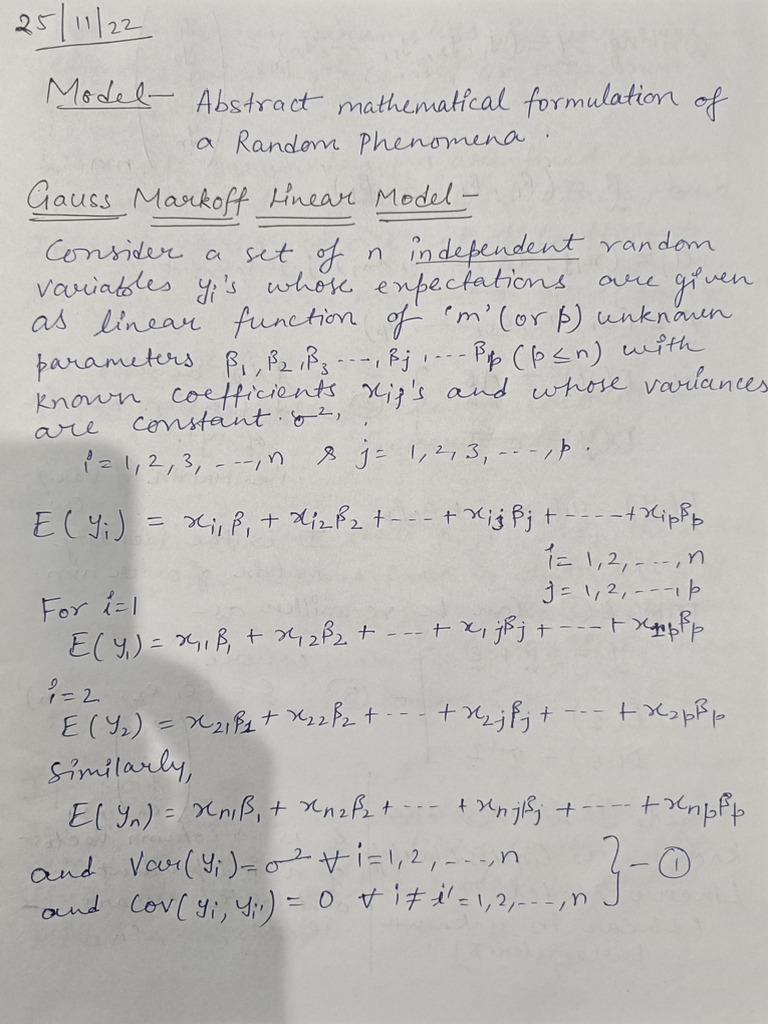 25/11/22
Model - Abstract mathematical formulation of
a Random Phenomena.
Gauss Markoff Linear Model -
Consider a set of n independent random
variables yi's whose expectations are given
as linear function of 'm' (or p) unknown
parameters β1, β2, β3 ---, βj, --- βp (p ≤ n) with
known coefficients xij's and whose variances
are constant σ²,
i = 1, 2, 3, ---, n & j = 1, 2, 3, ---, p.
E(yi) = xi1 β1 + xi2 β2 + --- + xij βj + ---- + xip βp
i = 1, 2, ---, n
j = 1, 2, ---, p
For i=1
E(y1) = x11 β1 + x12 β2 + --- + x1j βj + --- + x1p βp
i=2
E(y2) = x21 β1 + x22 β2 + --- + x2j βj + --- + x2p βp
Similarly,
E(yn) = xn1 β1 + xn2 β2 + --- + xnj βj + ---- + xnp βp
and Var(yi) = σ² ∀ i = 1, 2, ---, n
and Cov(yi, yi') = 0 ∀ i ≠ i' = 1, 2, ---, n } - ①